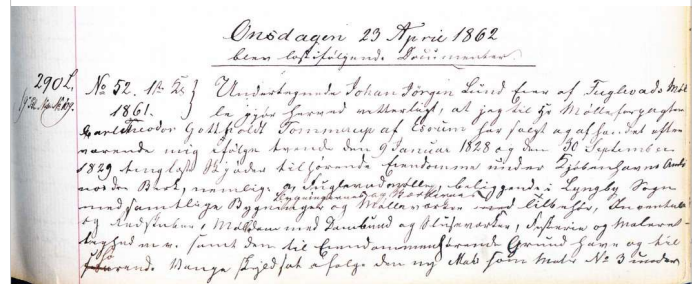 Onsdagen 23 April 1862
blev læst følgende Documenter.
290 L.
No 52. 1st Kl
1861.
Undertegnede Johan Jörgen Lund Eier af Fuglevads Möl
le gjör herved vitterligt, at jeg til Hr Mölleforpagter
Carl Theodor Gottholdt Tommerup af Esrum har solgt og afhændet efter
værende mig ifölge tvende den 9 Januar 1828 og den 30 September
1829 tinglæst Skjöder tilhörende Eiendomme under Kjöbenhavns Amts
norder Birk, nemlig: a, Fuglevadsmölle, beliggende i Lyngby Sogn
Bygningernes og Maskiner
med samtlige Bygninger og Mölleværker med tilbehör, Inventarie
og Redskaber, Mölledam med Dambund og Sluseværker, Fiskerie og Maleret
tighed m.v. samt den til Eiendommen hörende Grund Have og til
hörende Vange Skyldsat ifölge den ny Mat som Matr No 3 under